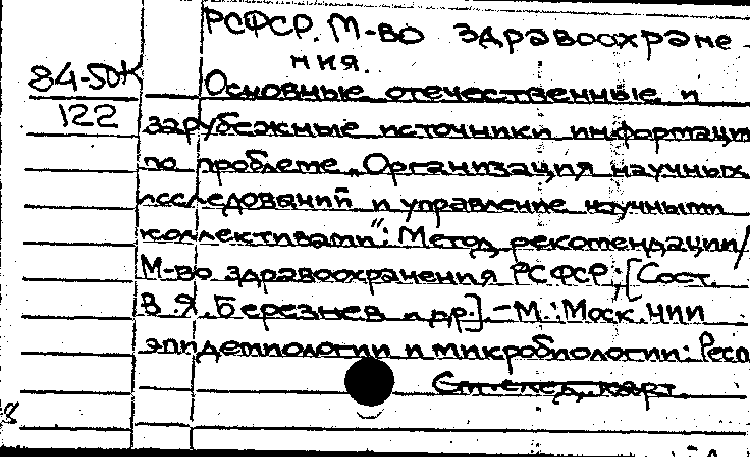 РСФСР. М-во здравоохране-
ния.
84-50к
122
Основные отечественные и
зарубежные источники информации
по проблеме „Организация научных
исследований и управление научными
коллективами“: Метод. рекомендации/
М-во здравоохранения РСФСР; [Сост.
В.Я. Березнев и др.]. – М.: Моск. НИИ
эпидемиологии и микробиологии: Респ
См. след. карт.
8